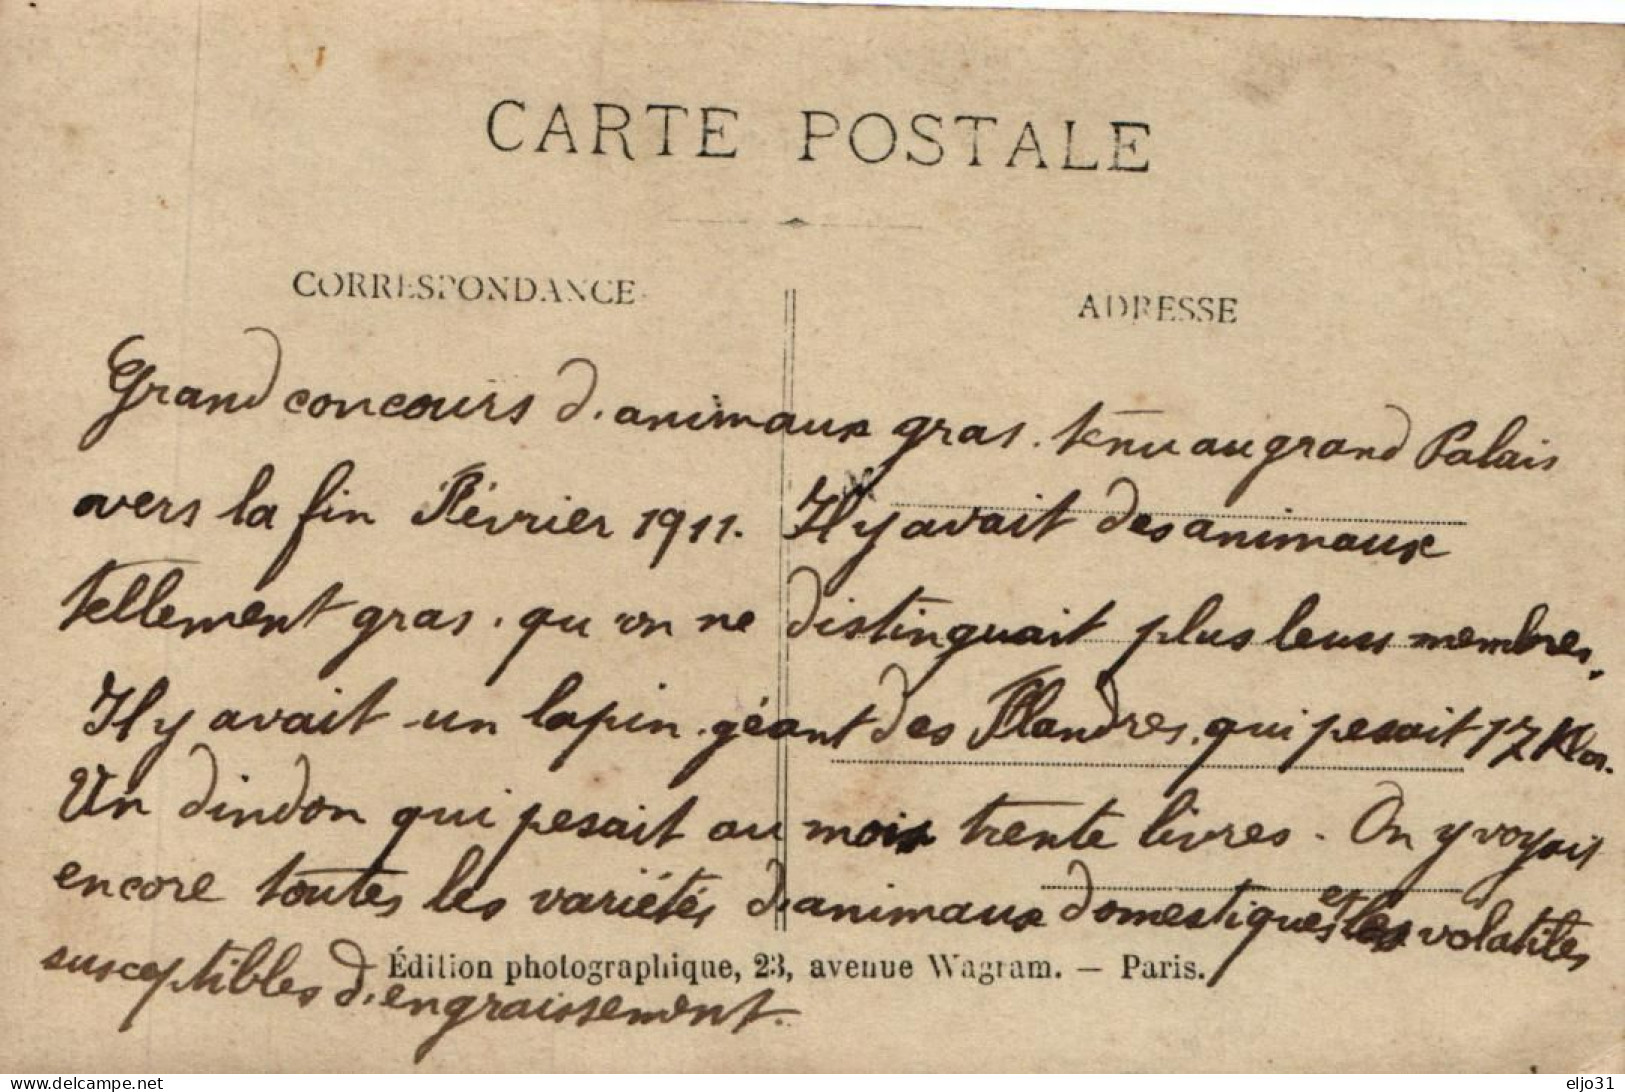 CARTE POSTALE
CORRESPONDANCE
ADRESSE
Grand concours d'animaux gras. tenu au grand Palais
vers la fin Février 1911. Il y avait des animaux
tellement gras. qu'on ne distinguait plus leurs membres.
Il y avait un lapin géant des Flandres, qui pesait 17 Kos.
Un dindon qui pesait au mois trente livres. On y voyait
encore toutes les variétés d'animaux domestiques et les volatiles
susceptibles d'engraissement.
Édition photographique, 23, avenue Wagram. — Paris.
delcampe.net
eljo31